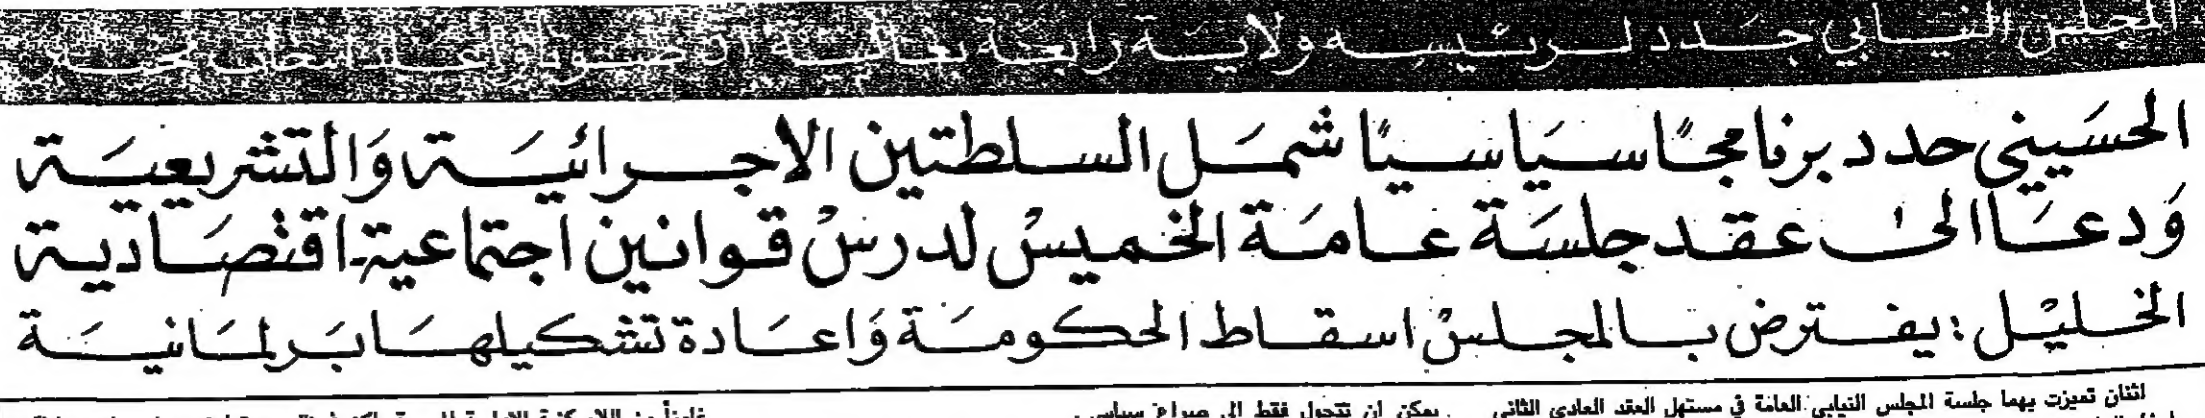 المجلس النيابي جدد لرئيسه ولاية رابعة بغالبية
الحسَيني حدد برنامجًا سيَاسيًا شمَل السلطتين الاجرائيَة وَالتشريعيَة
وَدعَا الى عقد جلسَة عامَة الخميسْ لدرسْ قوانين اجتماعية اقتصَادية
الخليْل : يفترض بالمجلسْ اسقاط الحكومَة وَاعَادة تشكيلهَا بَرلمَانيَة
اثنان تميزت بهما جلسة المجلس النيابي العامة في مستهل العقد العادي الثاني
يمكن ان تتحول فقط الى صراع سياسي